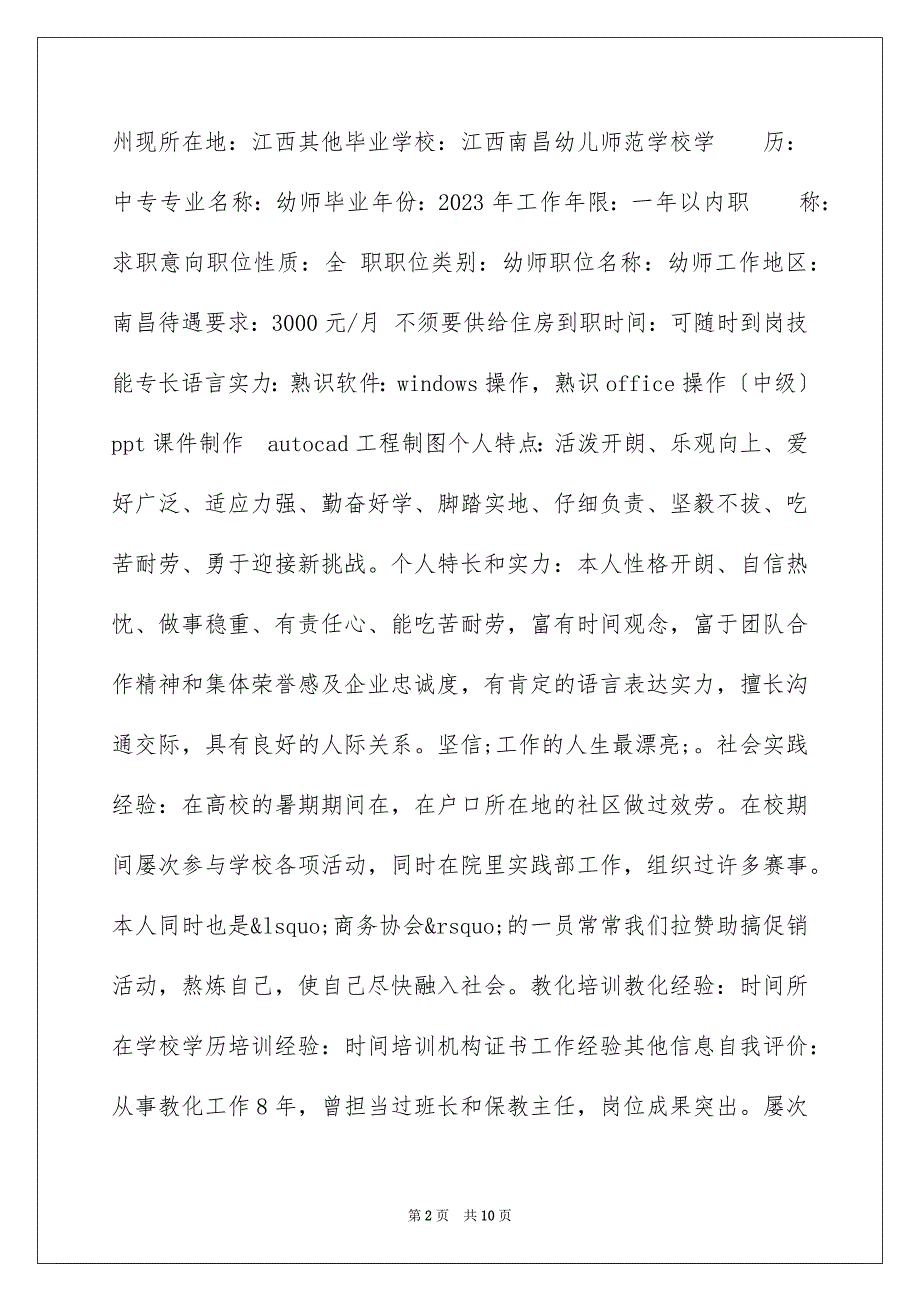 州现所在地：江西其他毕业学校：江西南昌幼儿师范学校学　　历：
中专专业名称：幼师毕业年份：2023 年工作年限：一年以内职　　称：
求职意向职位性质：全 职职位类别：幼师职位名称：幼师工作地区：
南昌待遇要求：3000 元/月 不须要供给住房到职时间：可随时到岗技
能专长语言实力：熟识软件：windows 操作，熟识 office 操作〔中级〕
ppt 课件制作　autocad 工程制图个人特点：活泼开朗、乐观向上、爱
好广泛、适应力强、勤奋好学、脚踏实地、仔细负责、坚毅不拔、吃
苦耐劳、勇于迎接新挑战。个人特长和实力：本人性格开朗、自信热
忱、做事稳重、有责任心、能吃苦耐劳，富有时间观念，富于团队合
作精神和集体荣誉感及企业忠诚度，有肯定的语言表达实力，擅长沟
通交际，具有良好的人际关系。坚信;工作的人生最漂亮;。社会实践
经验：在高校的暑期期间在，在户口所在地的社区做过效劳。在校期
间屡次参与学校各项活动，同时在院里实践部工作，组织过许多赛事。
本人同时也是&lsquo;商务协会&rsquo;的一员常常我们拉赞助搞促销
活动，熬炼自己，使自己尽快融入社会。教化培训教化经验：时间所
在学校学历培训经验：时间培训机构证书工作经验其他信息自我评价：
从事教化工作 8 年，曾担当过班长和保教主任，岗位成果突出。屡次
第 2 页　共 10 页